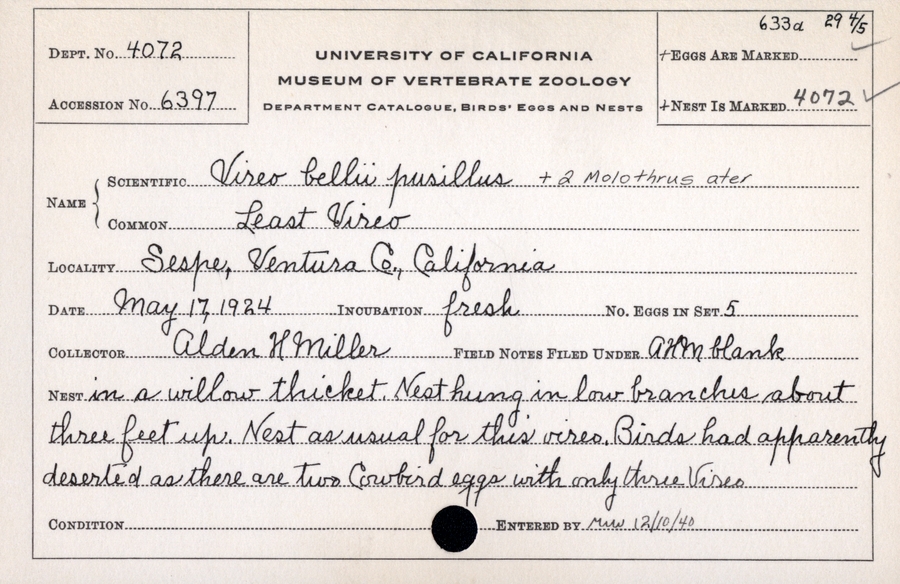 633a 29 4/5
Dept. No. 4072
UNIVERSITY OF CALIFORNIA
MUSEUM OF VERTEBRATE ZOOLOGY
Department Catalogue, Birds' Eggs and Nests
+Eggs Are Marked
Accession No. 6397
+Nest Is Marked 4072
Name
Scientific Vireo bellii pusillus + 2 Molothrus ater
Common Least Vireo
Locality Sespe, Ventura Co., California
Date May 17, 1924 Incubation fresh No. Eggs in Set 5
Collector Alden H Miller Field Notes Filed Under AHM blank
Nest in a willow thicket. Nest hung in low branches about
three feet up. Nest as usual for this vireo. Birds had apparently
deserted as there are two Cowbird eggs with only three Vireo
Condition Entered by 12/10/40